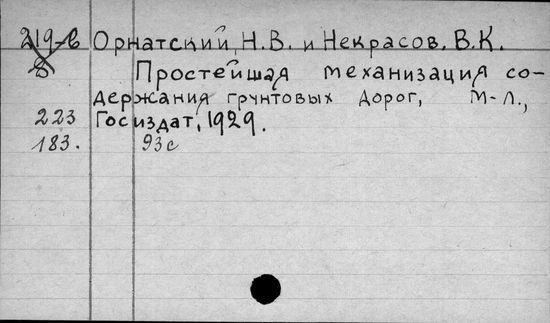 219-в Орнатский, Н.В. и Некрасов, В.К.
Простейшая механизация со-
держания грунтовых дорог, М-Л.,
223 Госиздат, 1929.
183. 93с